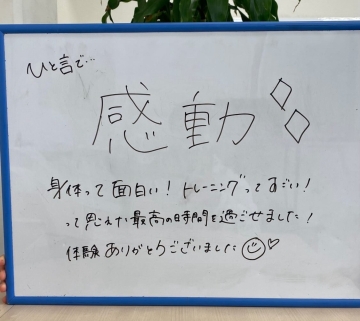 ひと言で…
感動
身体って面白い！トレーニングってすごい！
って思えた最高の時間を過ごせました！
体験ありがとうございました